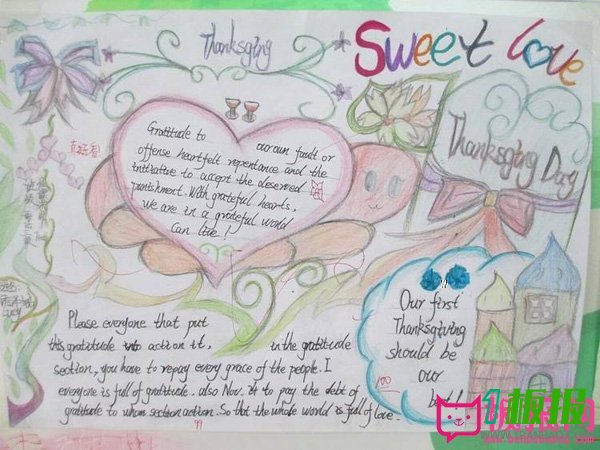 Thanksging
Sweet Love
Gratitude to our own fault or
offense heartfelt repentance and the
initiative to accept the deserved
punishment. With grateful hearts,
we are in a grateful world
can live!
Thanksging Day
Our first
Thanksgiving
should be
our
Please everyone that put
this gratitude into action it, in the gratitude
section, you have to repay every grace of the people. I
everyone is full of gratitude. also Nov. 24 to pay the debt of
gratitude to whom section action. So that the whole world is full of love.
99
100
板报